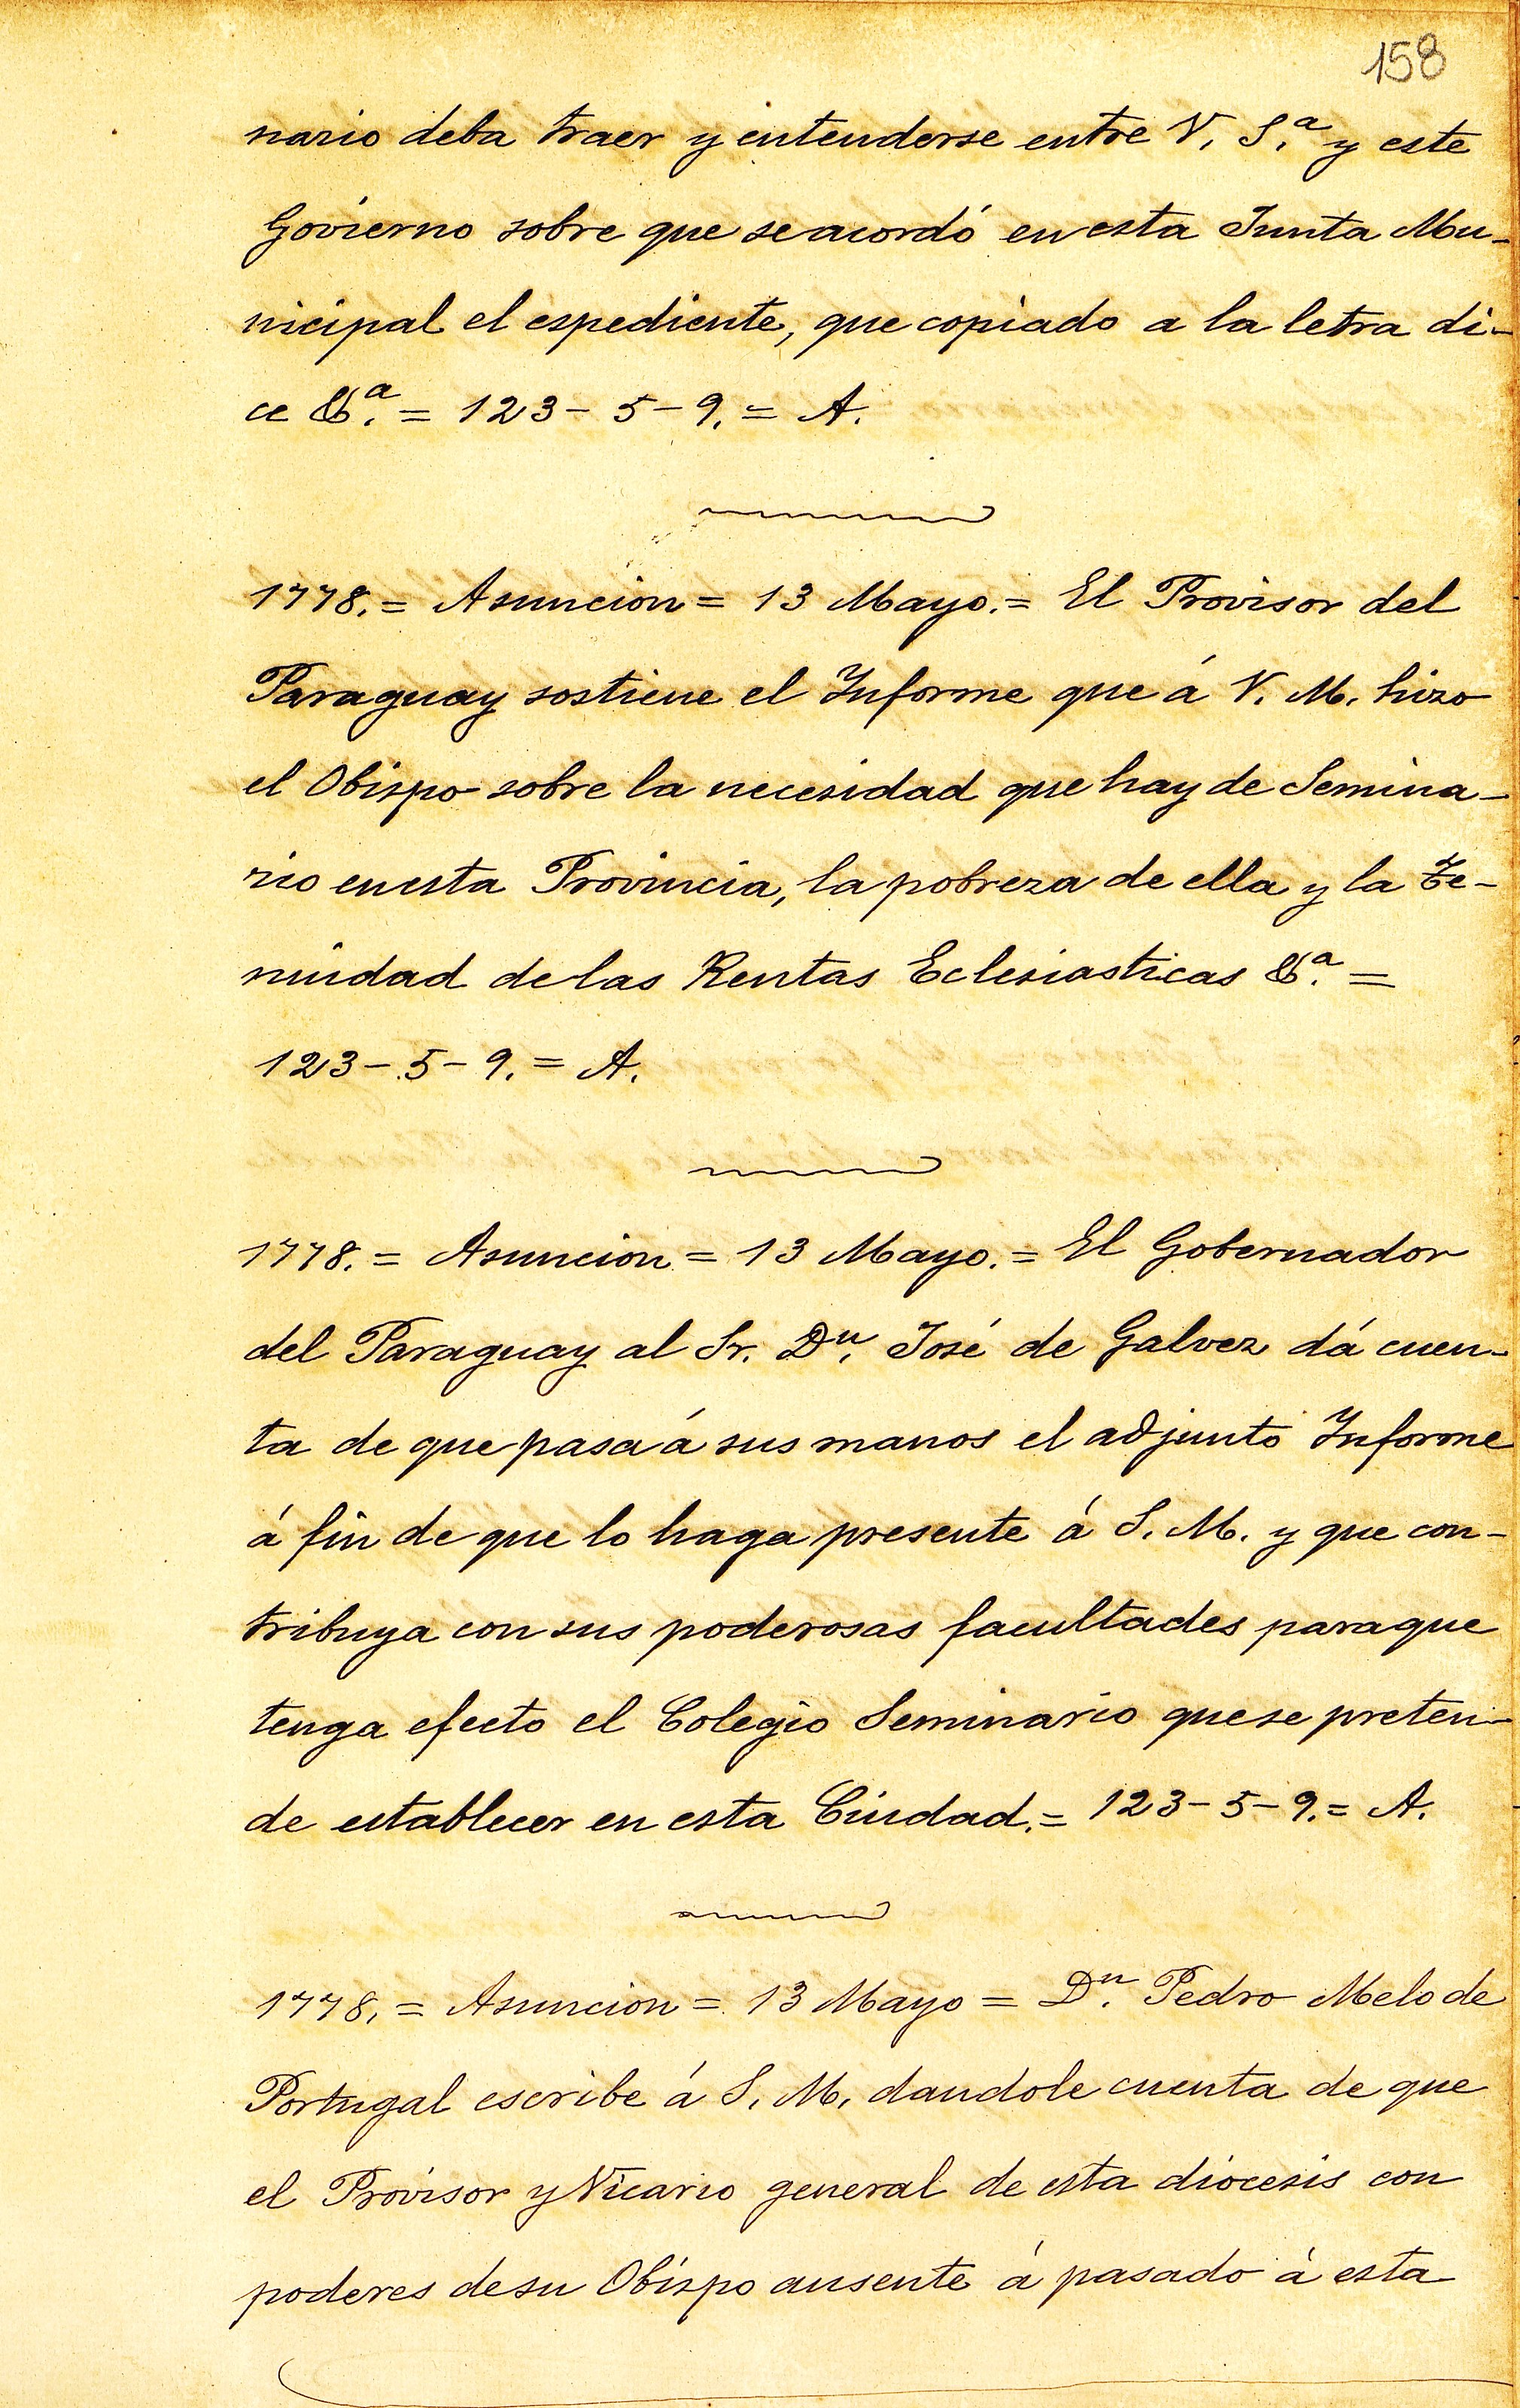 158
nario deba traer y entenderse entre V. S.ª y este
Govierno sobre que se acordó en esta Junta Mu-
nicipal el espediente, que copiado a la letra di-
ce &.ª = 123 - 5 - 9. = A.
1778. = Asuncion = 13 Mayo. = El Provisor del
Paraguay sostiene el Informe que á V. M. hizo
el Obispo sobre la necesidad que hay de Semina-
rio en esta Provincia, la pobreza de ella y la te-
nuidad de las Rentas Eclesiasticas &.ª =
123 - 5 - 9. = A.
1778. = Asuncion = 13 Mayo. = El Gobernador
del Paraguay al Sr. Dⁿ. José de Galvez dá cuen-
ta de que pasa á sus manos el adjunto Informe
á fin de que lo haga presente á S. M. y que con-
tribuya con sus poderosas facultades para que
tenga efecto el Colegio Seminario que se preten-
de establecer en esta Ciudad. = 123 - 5 - 9. = A.
1778. = Asuncion = 13 Mayo = Dⁿ. Pedro Melo de
Portugal escribe á S. M. dandole cuenta de que
el Provisor y Vicario general de esta diocesis con
poderes de su Obispo ausente á pasado á esta